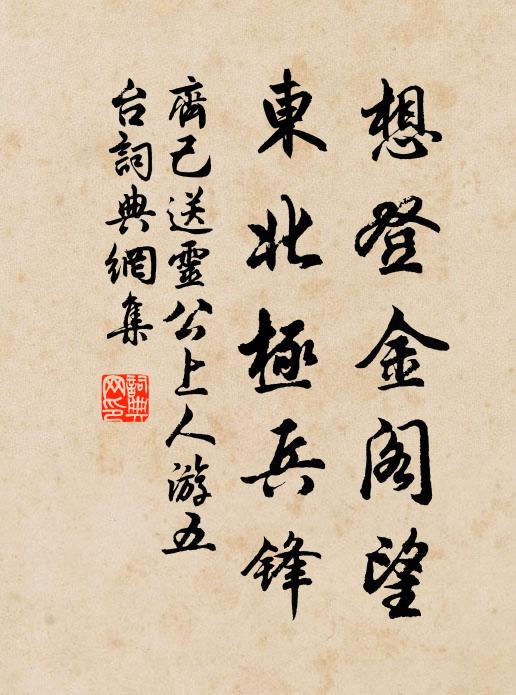 想登金阁望
東北極兵锋
齊己送靈公上人游五
台詞典網集
詞典
网印